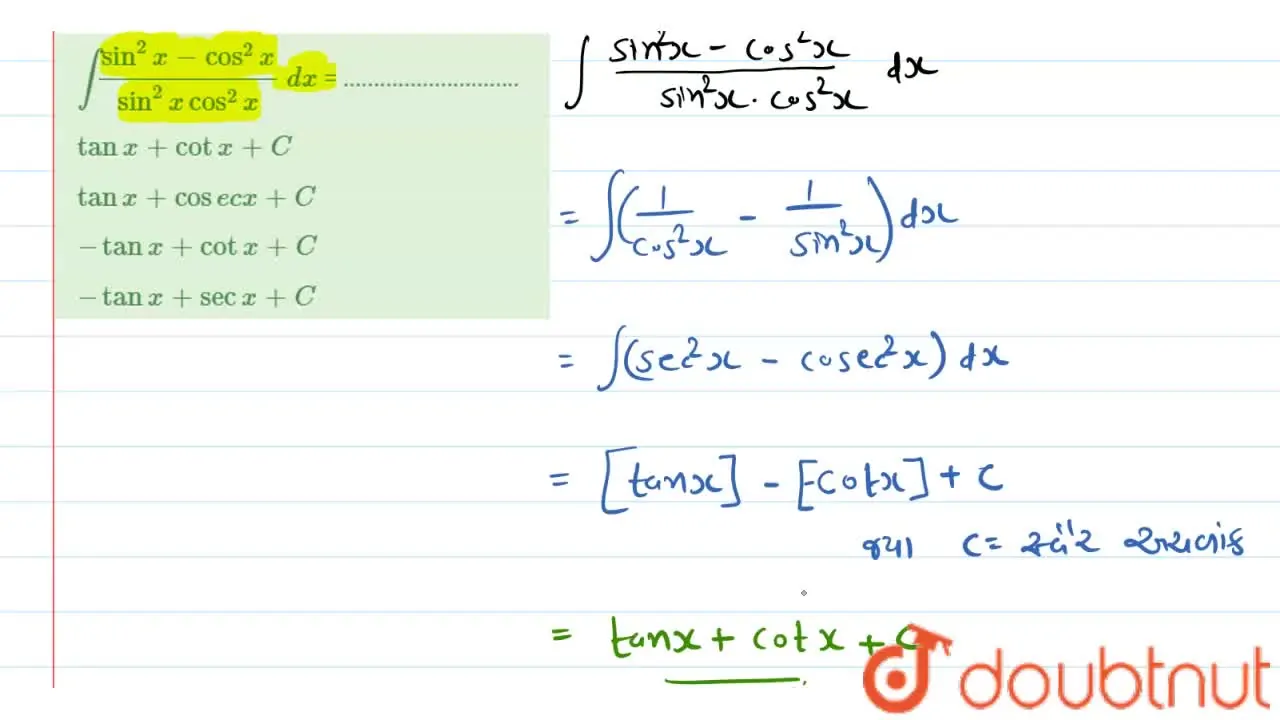 ∫ (sin² x − cos² x)/(sin² x cos² x) dx = ..............................
tan x + cot x + C
tan x + cos ecx + C
− tan x + cot x + C
− tan x + sec x + C
∫ (sin²x − cos²x)/(sin²x · cos²x) dx
= ∫(1/cos²x − 1/sin²x) dx
= ∫(sec²x − cosec²x) dx
= [tanx] − [−cotx] + c
જ્યાં c = સ્વૈર અચળાંક
= tanx + cotx + c
doubtnut